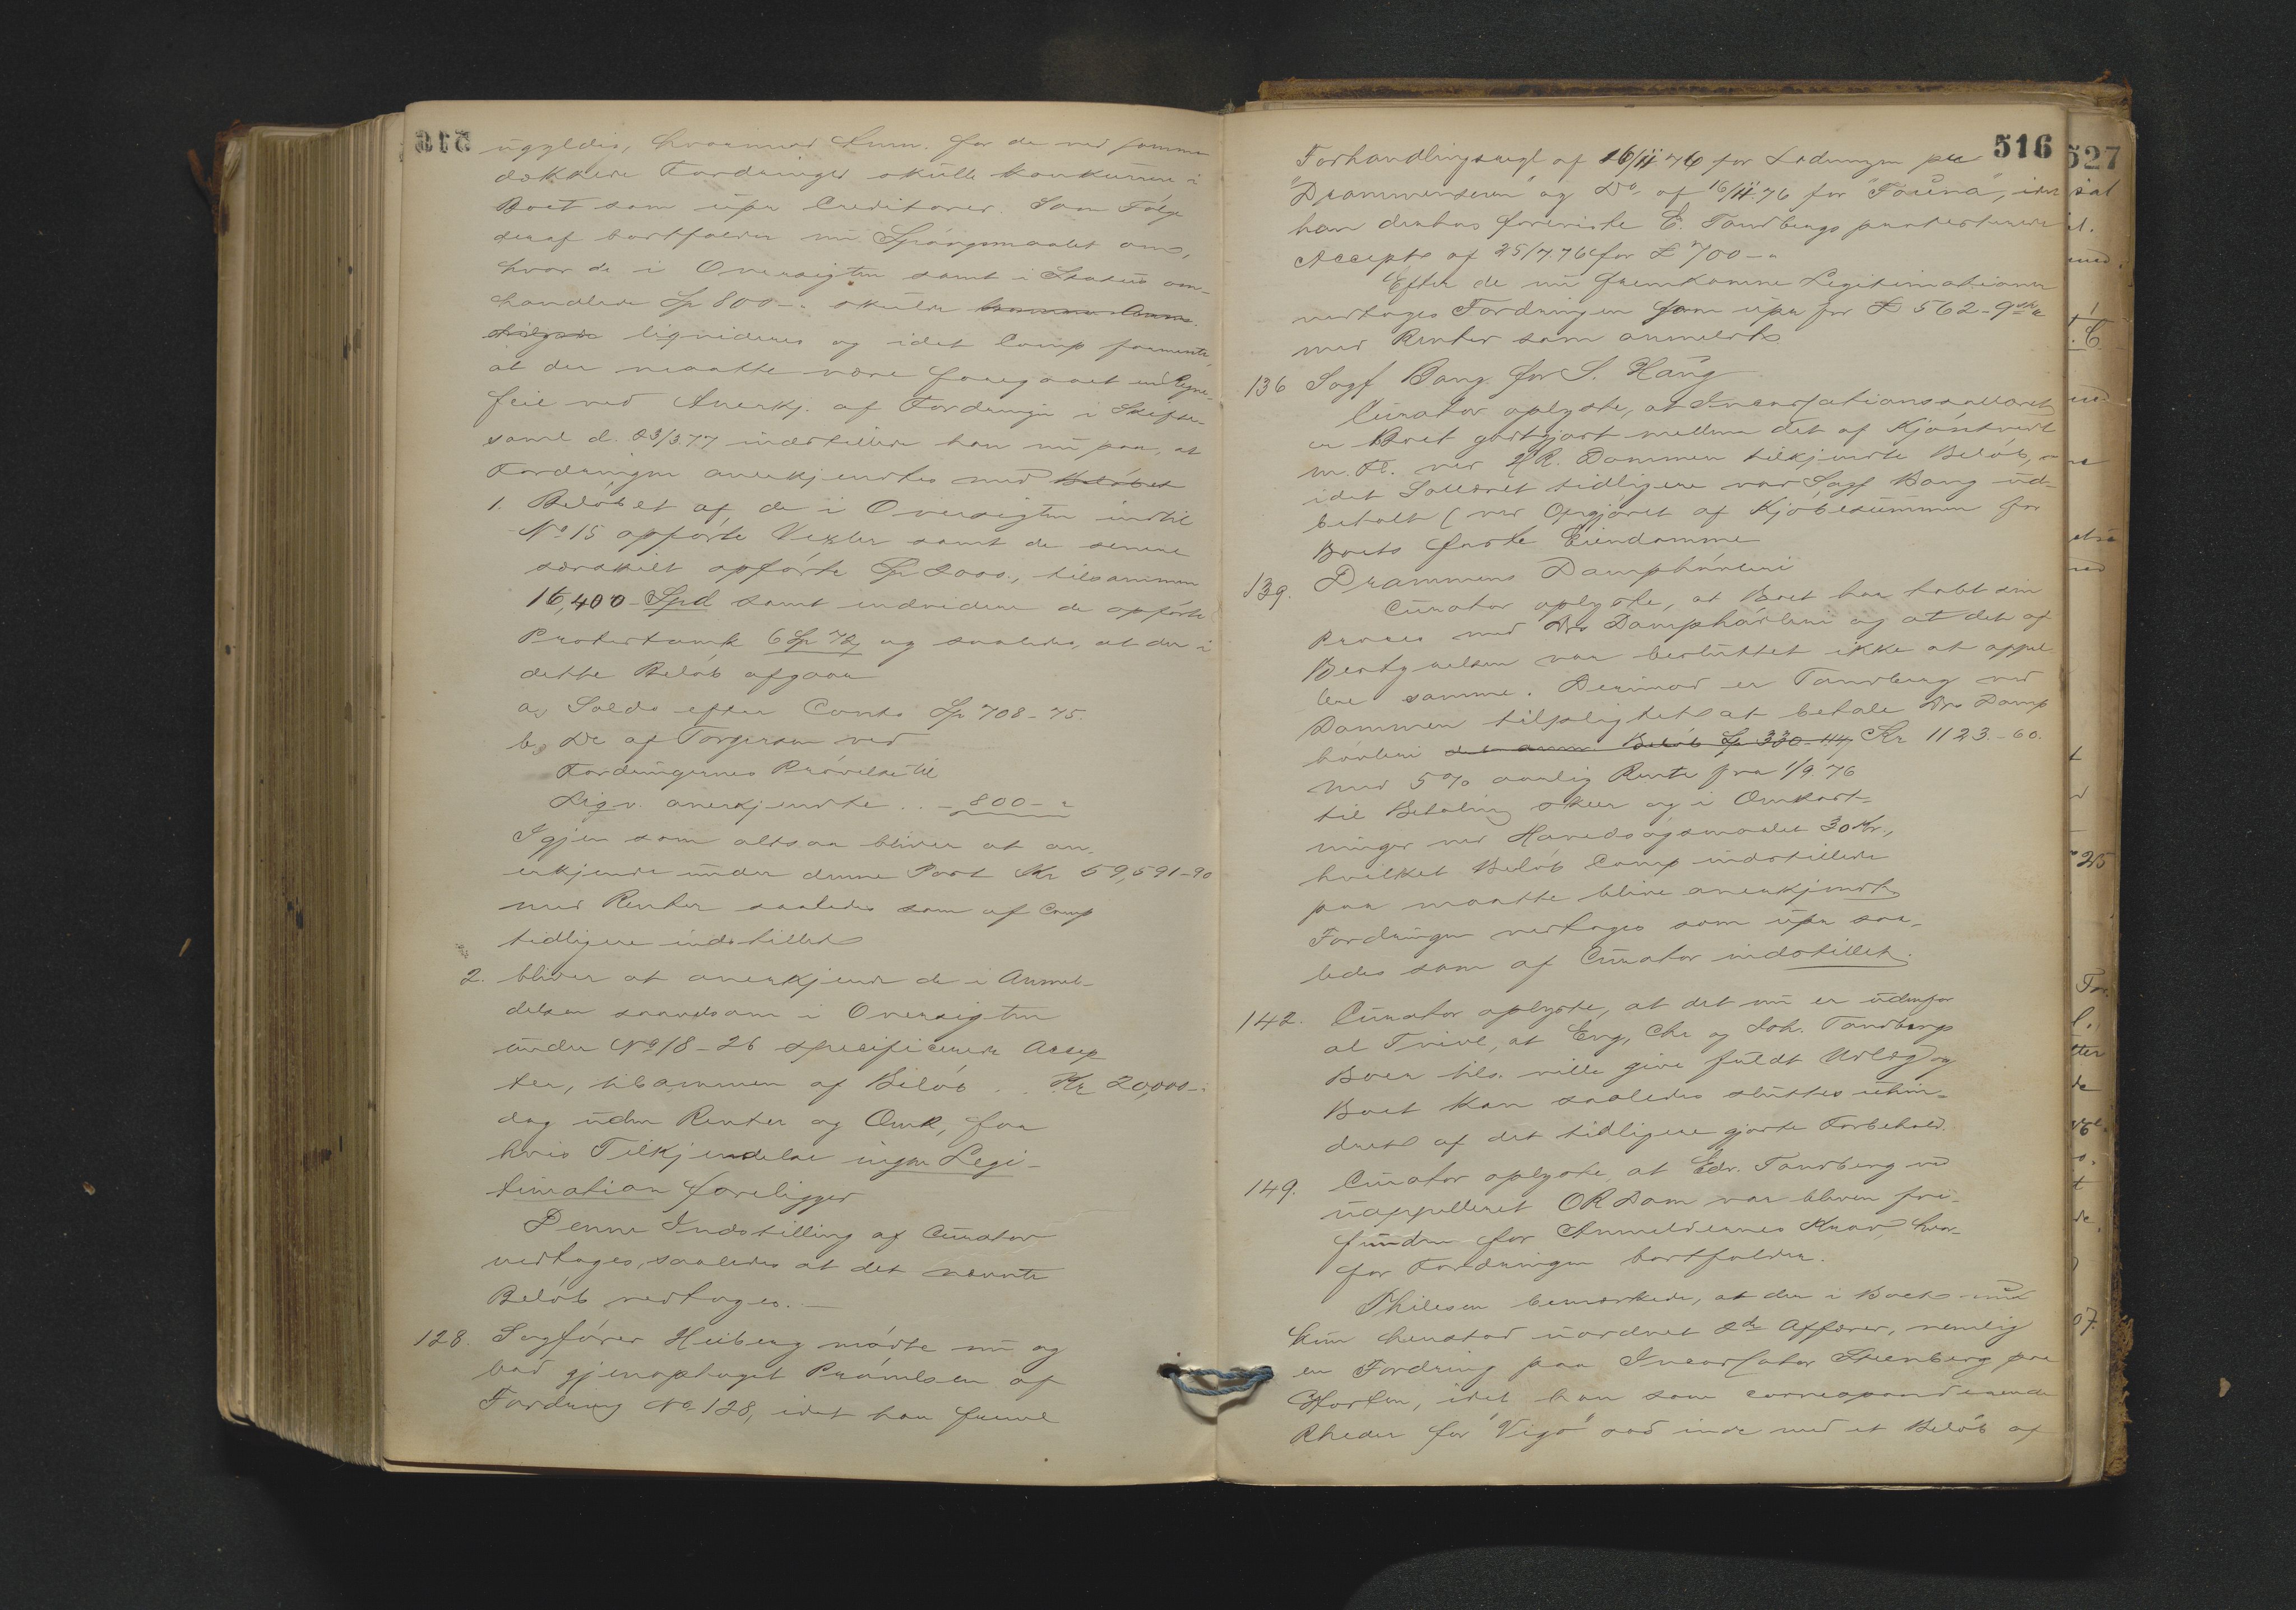 ugyldig, hvormed Anm. for de ved samme
dækkede Fordringer skulle konkurrere i
Boet som upr. Creditorer. Som Følge
deraf bortfalder nu Spørgsmaalet om,
hvor de i Oversigten samt i Status om-
handlede Sp 800 - skulde
liqvideres og idet Comp formente,
at der maatte være foregaaet en Regne-
feil ved Anerkj. af Fordringen i Skifte-
saml d. 23/3.77 indstillede han nu paa, at
Fordringen anerkjendtes med Beløbet
1. Beløbet af de i Oversigten indtil
No 15 opførte Vexler samt de senere
særskilt opførte Sp 2000., tilsammen
16,400 - Spd samt endvidere de opførte
Protestomk 6 Sp 72 og saaledes, at der i
dette Beløb afgaar
a, Saldo efter Conto Sp 708 - 75.
b, Do af Torgersen ved
Fordringernes Prøvelse til
Liqv. anerkjendte . . - 800 - "
Igjen som altsaa bliver at an-
erkjende under denne Post Kr 59,591-90
med Renter saaledes som af Comp
tidligere indstillet
2. bliver at anerkjende de i Anmel-
delsen saavelsom i Oversigten
under No 18 - 26 specificerede Accep
ter, tilsammen af Beløb . . Kr 20,000 -
dog uden Renter og Omk, for
hvis Tilkjendelse ingen Legi-
timation foreligger
Denne Indstilling af Curator
vedtages, saaledes at det nævnte
Beløb vedtages. -
128. Sagfører Heiberg mødte nu og
bad gjenoptaget Prøvelsen af
Fordring No 128, idet han freml
516
Forhandlingsregl af 16/11 76 for Ladningen pr
"Drammenseren" og Do af 16/11.76 for "Fauna", idet
han derhos foreviste E. Tandbergs protesterede
Accept af 25/7.76 for £ 700 - "
Efter de nu fremkomne Legitimationer
vedtages Fordringen som upr for £ 562 - 9 sh "
med Renter som anmeldt
136 Sagf Bang for S. Haug
Curator oplyste, at Incassationssallaret
er Boet godtgjort mellem det af Kjøntvedt
m. Fl. ved HR. Dommen tilkjendte Beløb,
idet Sallæret tidligere var Sagf Bang ud-
betalt (ved Opgjøret af Kjøbesummen for
Boets faste Eiendomme
139. Drammens Damphøvleri
Curator oplyste, at Boet har tabt sin
Proces med Drs Damphøvleri og at det af
Bestyrelsen var besluttet ikke at appel-
lere samme. Derimod er Tandberg ved
Dommen tilpligtet at betale Drs Damp
høvleri Beløb Sp 330 - 44 Kr 1123 - 60.
med 5% aarlig Rente fra 1/9 76
til Betaling skeer og i Omkost-
ninger ved Hovedsøgsmaalet 30 Kr.,
hvilket Beløb Comp indstillede
paa maatte blive anerkjendt
Fordringen vedtages som upr saa-
ledes som af Curator indstillet.
142. Curator oplyste, at det nu er udenfor
al Tvivl, at Eng, Chr og Joh. Tandbergs
Boer hls. ville give fuldt Udlæg og
Boet kan saaledes sluttes uhin-
dret af det tidligere gjorte Forbehold.
149. Curator oplyste at Edv. Tandberg ved
uappelleret OR Dom var bleven fri-
funden for Anmeldernes Krav, hvor-
for Fordringen bortfalder.
Thilesen bemærkede, at der i Boet nu
kun henstod uordnet 2de Affærer, nemlig
en Fordring paa Incassator Steenberg paa
Horten, idet han som correspondrende
Rheder for "Vigo" sad inde med et Beløb af
527